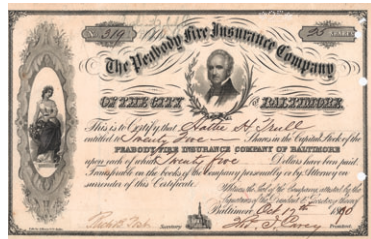 No. 319
25 SHARES
The Peabody Fire Insurance Company
OF THE CITY OF BALTIMORE
This is to Certify that Hattie H. Trull
entitled to Twenty Five Shares in the Capital Stock of the
PEABODY FIRE INSURANCE COMPANY OF BALTIMORE
upon each of which Twenty five Dollars have been paid.
Transferable on the books of the Company personally or by Attorney on
surrender of this Certificate.
Witness the Seal of the Company attested by the
Baltimore Oct 17th 1890
Secretary
President